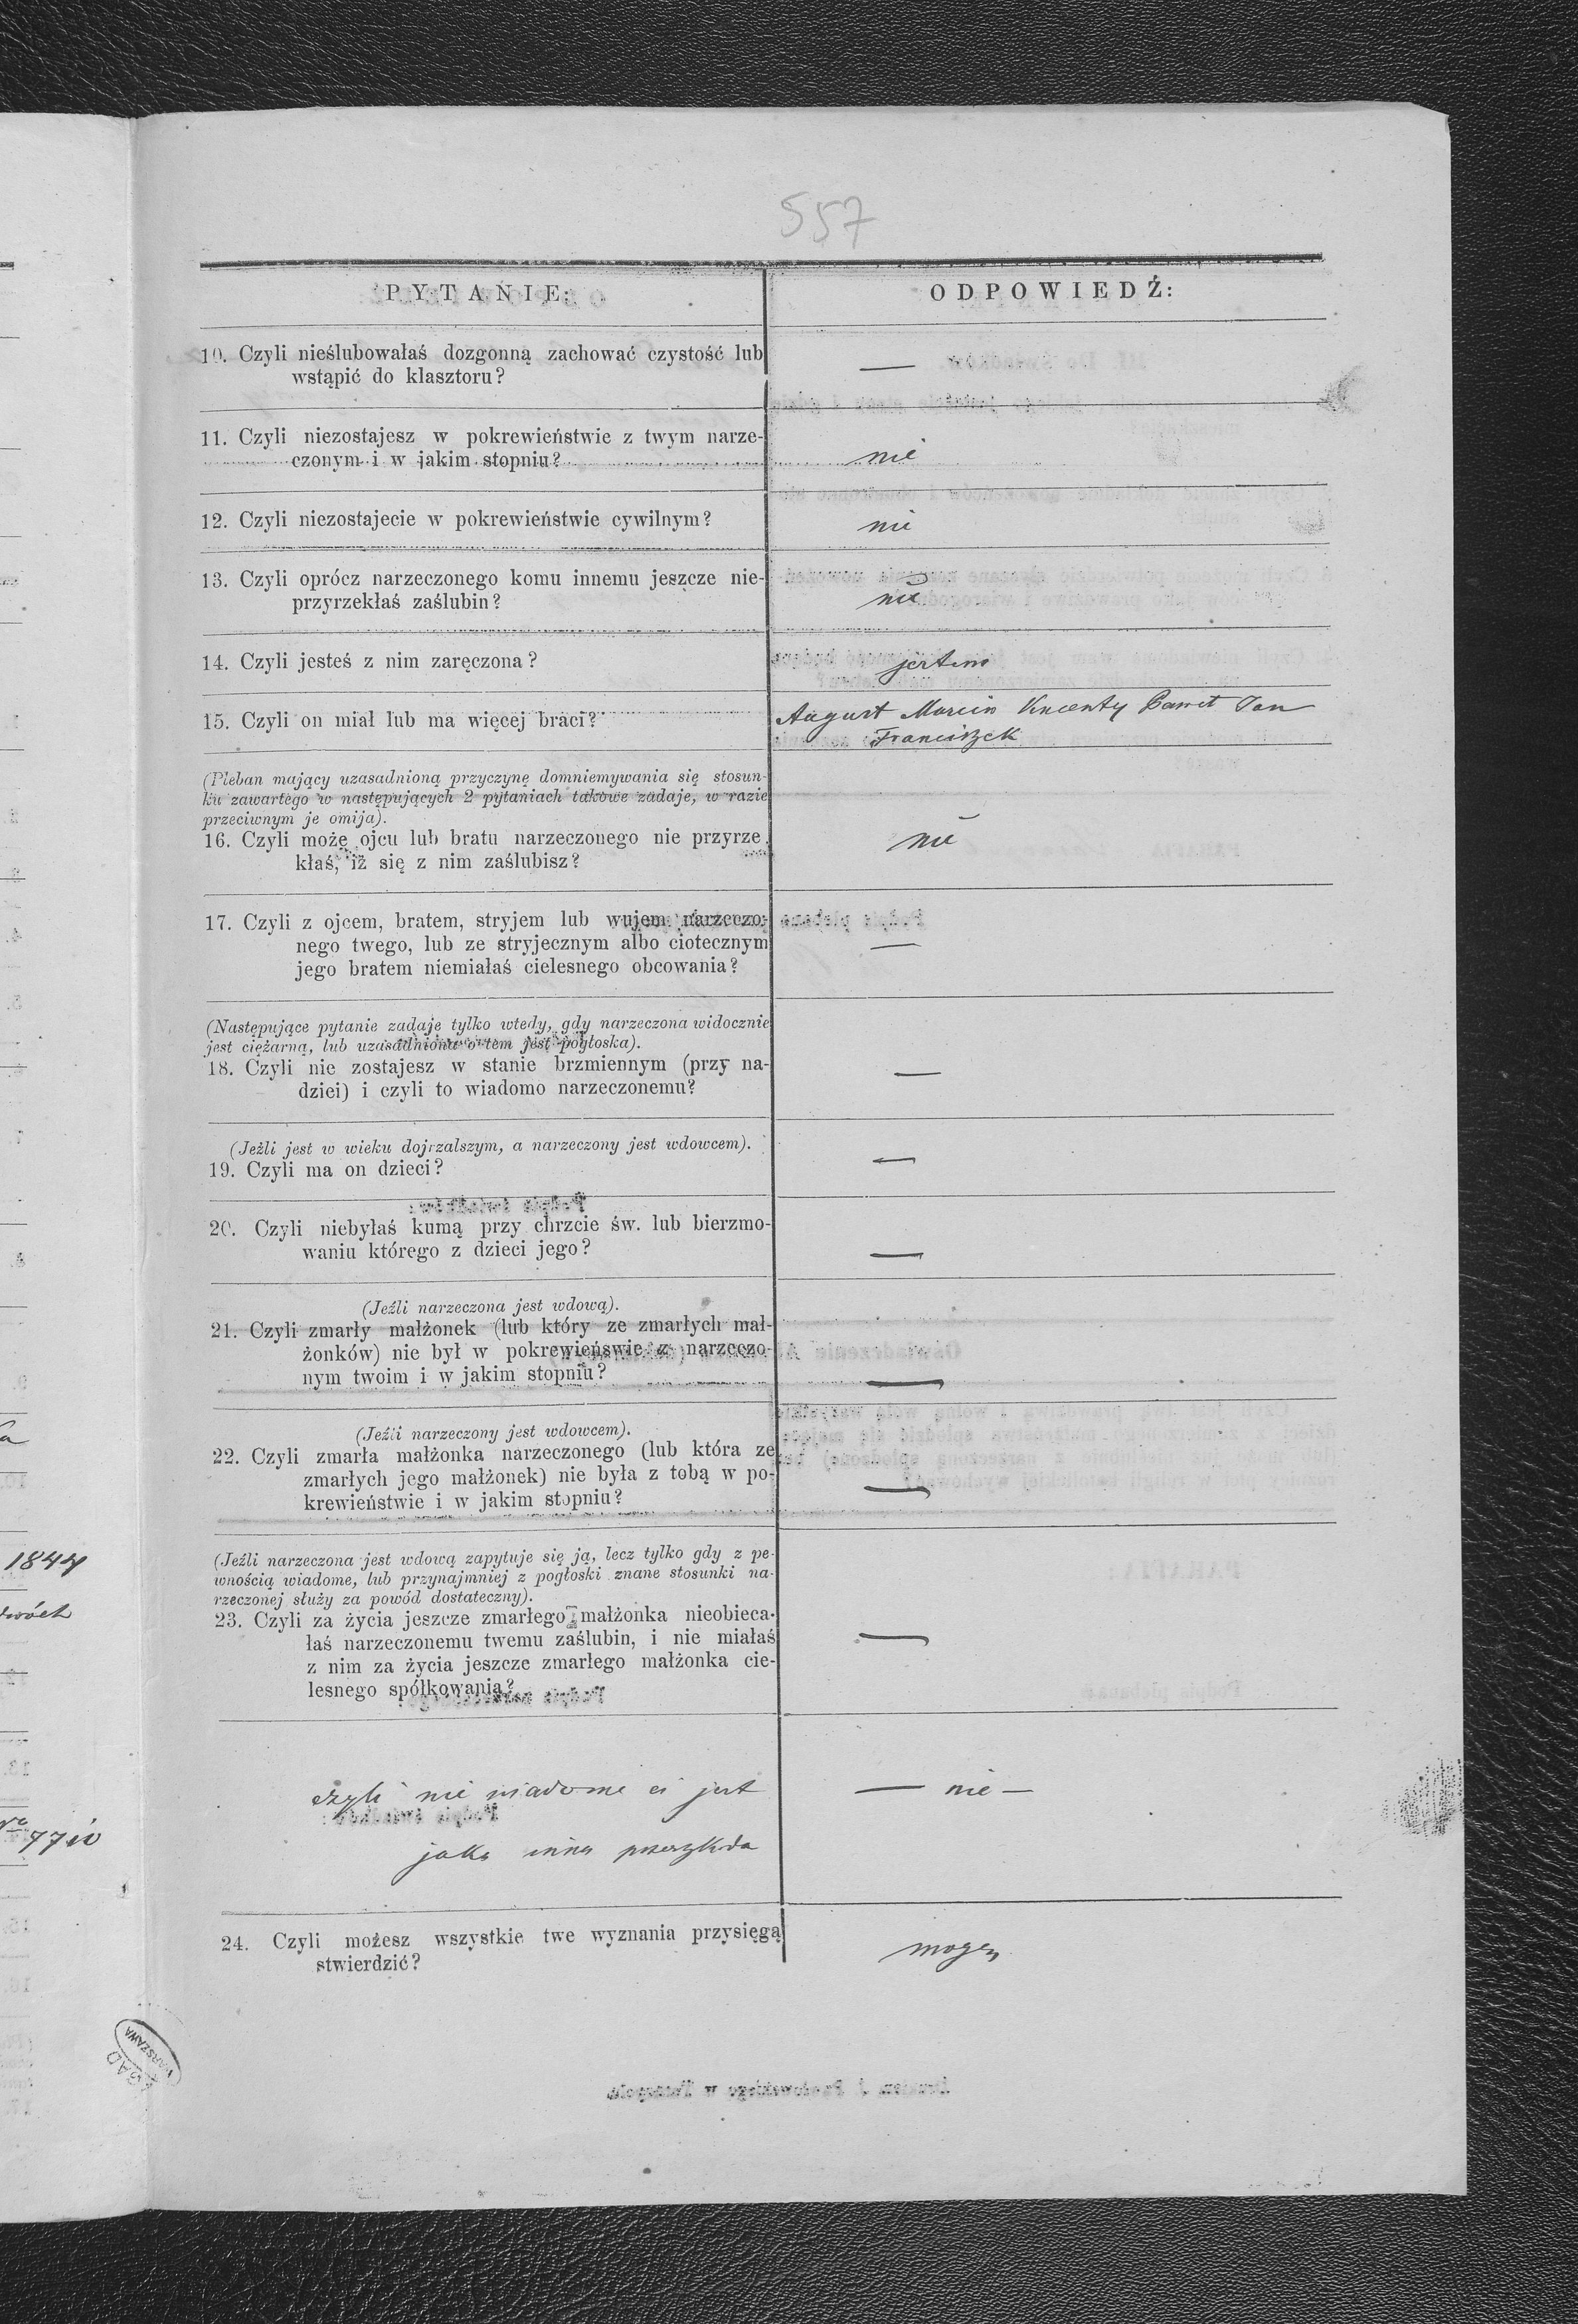 557
PYTANIE:
ODPOWIEDŹ:
10. Czyli nieślubowałaś dozgonną zachować czystość lub
wstąpić do klasztoru?
—
11. Czyli niezostajesz w pokrewieństwie z twym narze-
czonym i w jakim stopniu?
nie
12. Czyli niezostajecie w pokrewieństwie cywilnym?
nie
13. Czyli oprócz narzeczonego komu innemu jeszcze nie-
przyrzekłaś zaślubin?
nie
14. Czyli jesteś z nim zaręczona?
jestem
15. Czyli on miał lub ma więcej braci?
August Marcin Vincenty Paweł Jan
Franciszek
(Pleban mający uzasadnioną przyczynę domniemywania się stosun-
ku zawartego w następujących 2 pytaniach takowe zadaje, w razie
przeciwnym je omija).
16. Czyli może ojcu lub bratu narzeczonego nie przyrze
kłaś, iż się z nim zaślubisz?
nie
17. Czyli z ojcem, bratem, stryjem lub wujem narzeczo-
nego twego, lub ze stryjecznym albo ciotecznym
jego bratem niemiałaś cielesnego obcowania?
—
(Następujące pytanie zadaje tylko wtedy, gdy narzeczona widocznie
jest ciężarną, lub uzasadniona o tem jest pogłoska).
18. Czyli nie zostajesz w stanie brzmiennym (przy na-
dziei) i czyli to wiadomo narzeczonemu?
—
(Jeżli jest w wieku dojrzalszym, a narzeczony jest wdowcem).
19. Czyli ma on dzieci?
—
20. Czyli niebyłaś kumą przy chrzcie św. lub bierzmo-
waniu którego z dzieci jego?
—
(Jeźli narzeczona jest wdową).
21. Czyli zmarły małżonek (lub który ze zmarłych mał-
żonków) nie był w pokrewieńswie z narzeczo-
nym twoim i w jakim stopniu?
—
(Jeźli narzeczony jest wdowcem).
22. Czyli zmarła małżonka narzeczonego (lub która ze
zmarłych jego małżonek) nie była z tobą w po-
krewieństwie i w jakim stopniu?
—
(Jeźli narzeczona jest wdową zapytuje się ją, lecz tylko gdy z pe-
wnością wiadome, lub przynajmniej z pogłoski znane stosunki na-
rzeczonej służy za powód dostateczny).
23. Czyli za życia jeszcze zmarłego małżonka nieobieca-
łaś narzeczonemu twemu zaślubin, i nie miałaś
z nim za życia jeszcze zmarłego małżonka cie-
lesnego spółkowania?
—
czyli nie wiadome ci jest
jaka inna przeszkoda
— nie —
24. Czyli możesz wszystkie twe wyznania przysięgą
stwierdzić?
mogę
1844
7710
AGAD
WARSZAWA